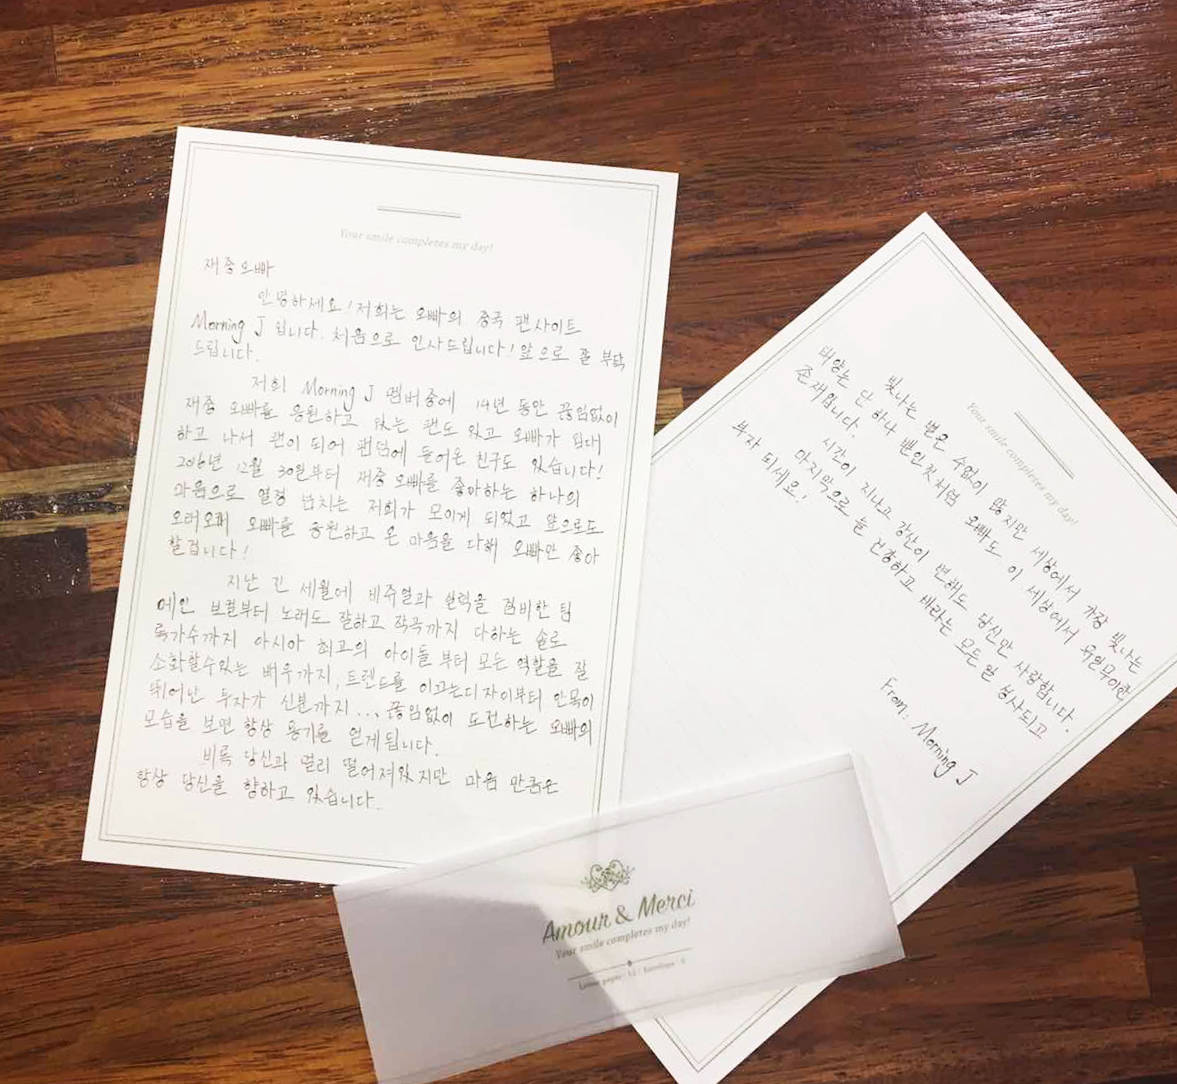 Your smile completes my day!
재중오빠
안녕하세요! 저희는 오빠의 중국 팬사이트
Morning J 입니다. 처음으로 인사드립니다! 앞으로 잘 부탁
드립니다.
저희 Morning J 멤버중에 14년 동안 끊임없이
재중 오빠를 응원하고 있는 팬도 있고 오빠가
하고 나서 팬이 되어 팬덤에 들어온 친구도 있습니다!
2016년 12월 30일부터 재중 오빠를 좋아하는 하나의
마음으로 열정 넘치는 저희가 모이게 되었고 앞으로도
오빠를 응원하고 온 마음을 다해 오빠만 좋아
할겁니다!
지난 긴 세월에 비주얼과 실력을 겸비한 팀
메인 보컬부터 노래도 잘하고 작곡까지 다하는 솔로
록가수까지 아시아 최고의 아이돌부터 모든 역할을 잘
소화할수있는 배우까지, 트렌드를 이끄는디자이부터 안목이
뛰어난 투자가 신분까지... 끊임없이 도전하는 오빠의
모습을 보면 항상 용기를 얻게됩니다.
비록 당신과 멀리 떨어져있지만 마음 만큼은
항상 당신을 향하고 있습니다.
Your smile completes my day!
빛나는 별은 수없이 많지만 세상에서 가장 빛나는
태양은 단 하나 뿐인것처럼 오빠도 이 세상에서 유일무이한
존재입니다.
시간이 지나고 강산이 변해도 당신만 사랑합니다.
마지막으로 늘 건강하고 바라는 모든일 성사되고
부자 되세요!
From: Morning J
Amour & Merci
Your smile completes my day!